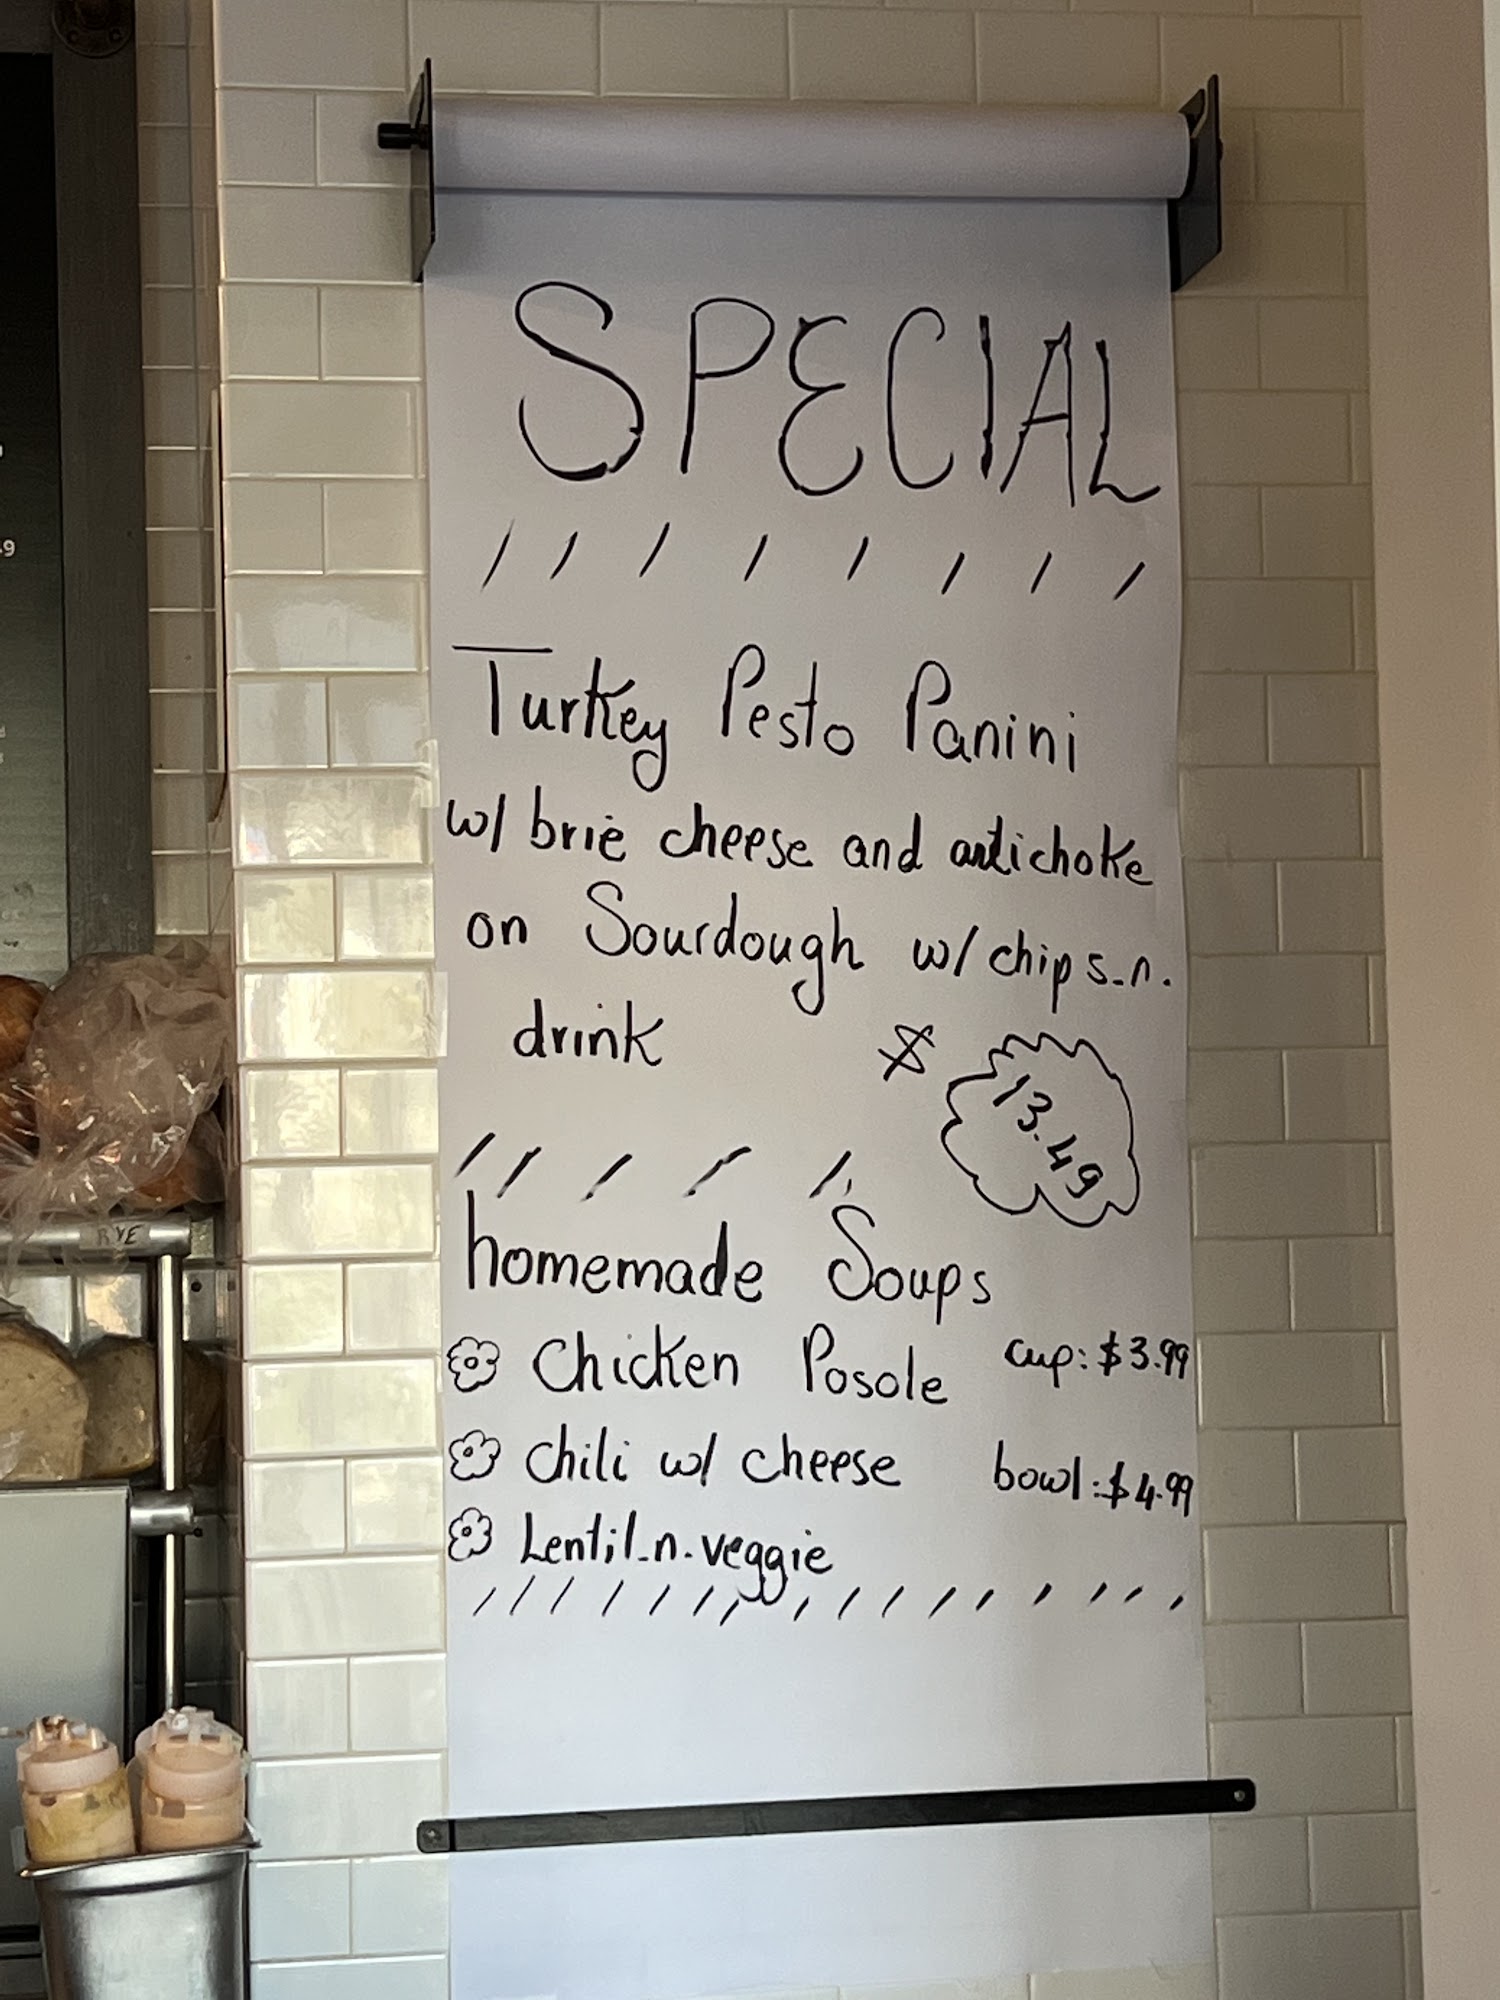 SPECIAL
Turkey Pesto Panini
w/ brie cheese and artichoke
on Sourdough w/ chips-n.
drink
$ 13.49
homemade Soups
Chicken Posole cup: $3.99
chili w/ cheese bowl: $4.99
Lentil-n.veggie
RYE